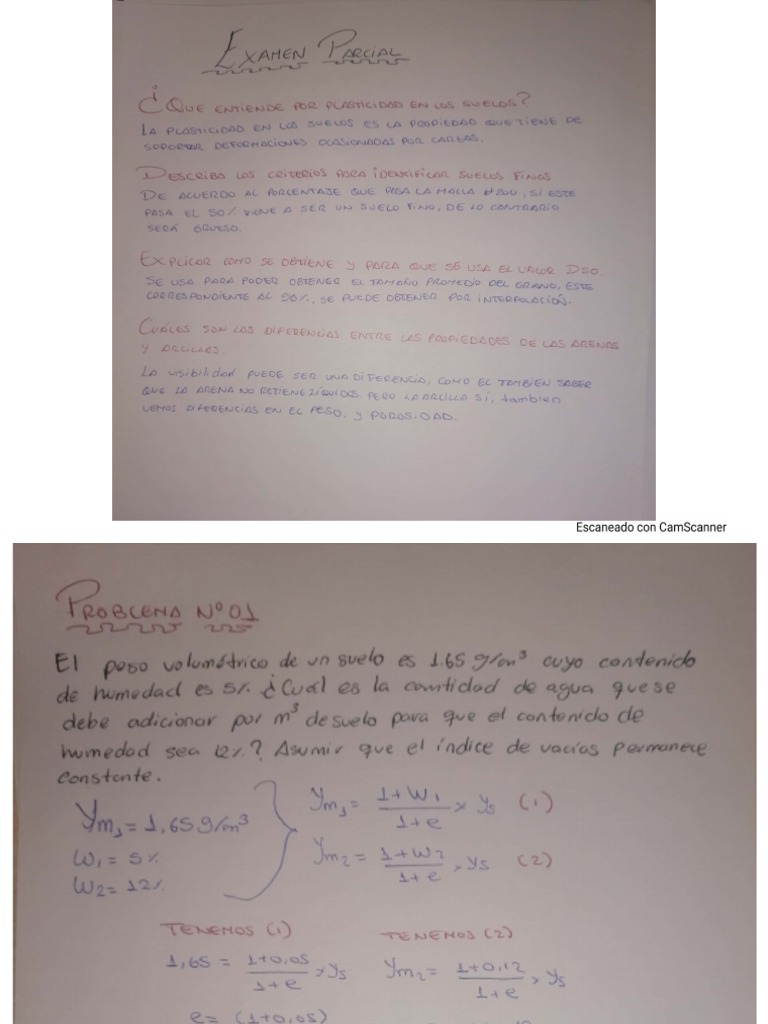 EXAMEN PARCIAL
¿QUE ENTIENDE POR PLASTICIDAD EN LOS SUELOS?
LA PLASTICIDAD EN LOS SUELOS ES LA PROPIEDAD QUE TIENE DE
SOPORTAR DEFORMACIONES OCASIONADAS POR CARGAS.
DESCRIBA LOS CRITERIOS PARA IDENTIFICAR SUELOS FINOS
DE ACUERDO AL PORCENTAJE QUE PASA LA MALLA #200, SI ESTE
PASA EL 50% VIENE A SER UN SUELO FINO, DE LO CONTRARIO
SERÁ GRUESO.
EXPLICAR COMO SE OBTIENE Y PARA QUE SE USA EL VALOR D50.
SE USA PARA PODER OBTENER EL TAMAÑO PROMEDIO DEL GRANO, ESTE
CORRESPONDIENTE AL 50%, SE PUEDE OBTENER POR INTERPOLACIÓN.
CUÁLES SON LAS DIFERENCIAS ENTRE LAS PROPIEDADES DE LAS ARENAS
Y ARCILLAS.
LA VISIBILIDAD PUEDE SER UNA DIFERENCIA, COMO EL TAMBIEN SABER
QUE LA ARENA NO RETIENE LÍQUIDOS. PERO LA ARCILLA SÍ, tambien
VEMOS DIFERENCIAS EN EL PESO, Y POROSIDAD.
Escaneado con CamScanner
PROBLEMA N°01
El peso volumétrico de un suelo es 1.65 g/cm³ cuyo contenido
de humedad es 5% ¿Cuál es la cantidad de agua que se
debe adicionar por m³ de suelo para que el contenido de
humedad sea 12%? Asumir que el índice de vacíos permanece
constante.
γm₁ = 1,65 g/cm³
W₁ = 5%
W₂ = 12%
γm₁ = (1+W₁)/(1+e) × γs (1)
γm₂ = (1+W2)/(1+e) × γs (2)
TENEMOS (1) TENEMOS (2)
1,65 = (1+0,05)/(1+e) × γs γm₂ = (1+0,12)/(1+e) × γs
e = (1+0,05)